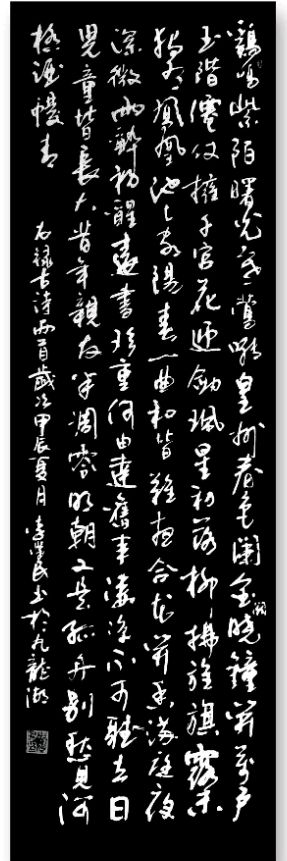 鷄鳴紫陌曙光寒鶯囀皇州春色闌金闕曉鐘開萬戶
玉階僊仗擁千官花迎劍珮星初落柳拂旌旗露未
獨有鳳凰池上客陽春一曲和皆難夜合花開香滿庭夜
深微雨醉初醒遠書珍重何由達舊事凄涼不可聽去日
兒童皆長大昔年親友半凋零明朝又是孤舟別愁見河
橋酒幔青
右錄古詩兩首歲次甲辰夏月李民書於九龍湖